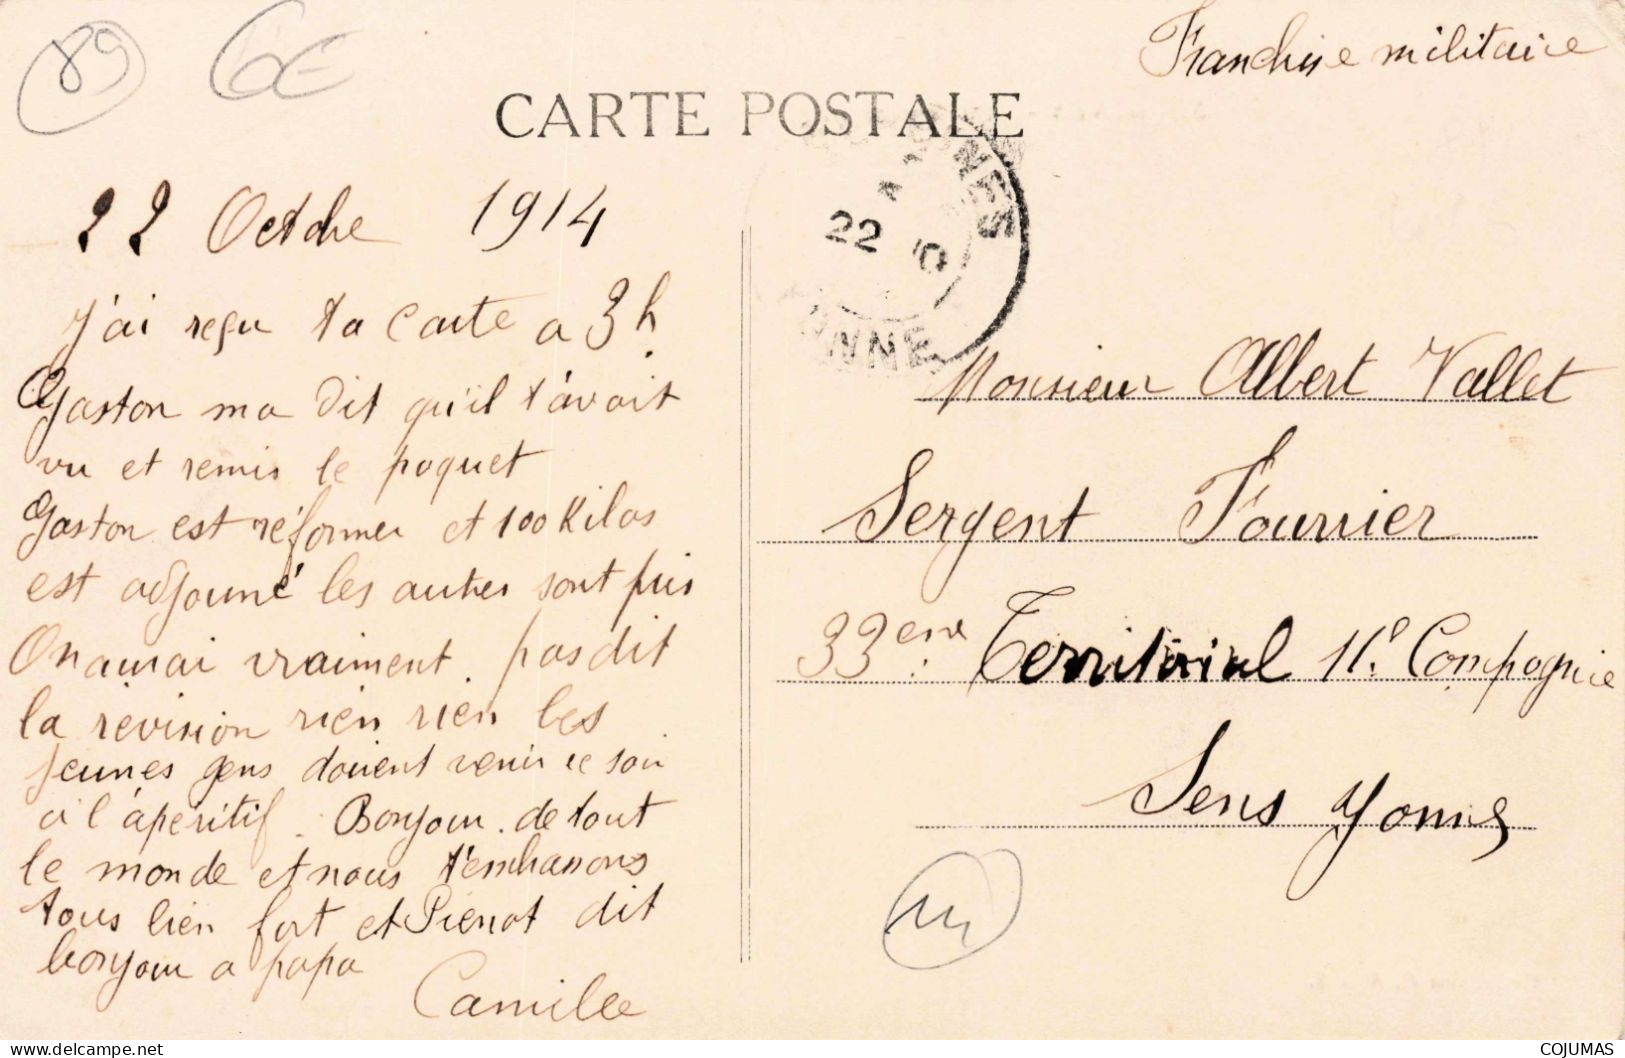 89 6€
Franchise militaire
CARTE POSTALE
NNES
22 10
YONNE
22 Octobre 1914
J'ai reçu ta carte a 3h.
Gaston ma dit qu'il t'avait
vu et remis le paquet
Gaston est réformer et 100 Kilos
est adjourné les autres sont pris
On aurai vraiment pas dit
la révision rien rien les
jeunes gens doivent venir ce soir
a l'apéritif. Bonjour de tout
le monde et nous t'embrassons
tous bien fort et Pierrot dit
bonjour a papa
Camille
Monsieur Albert Vallet
Sergent Fourrier
33eme Territorial 11e Compagnie
Sens Yonne
delcampe.net
COJUMAS